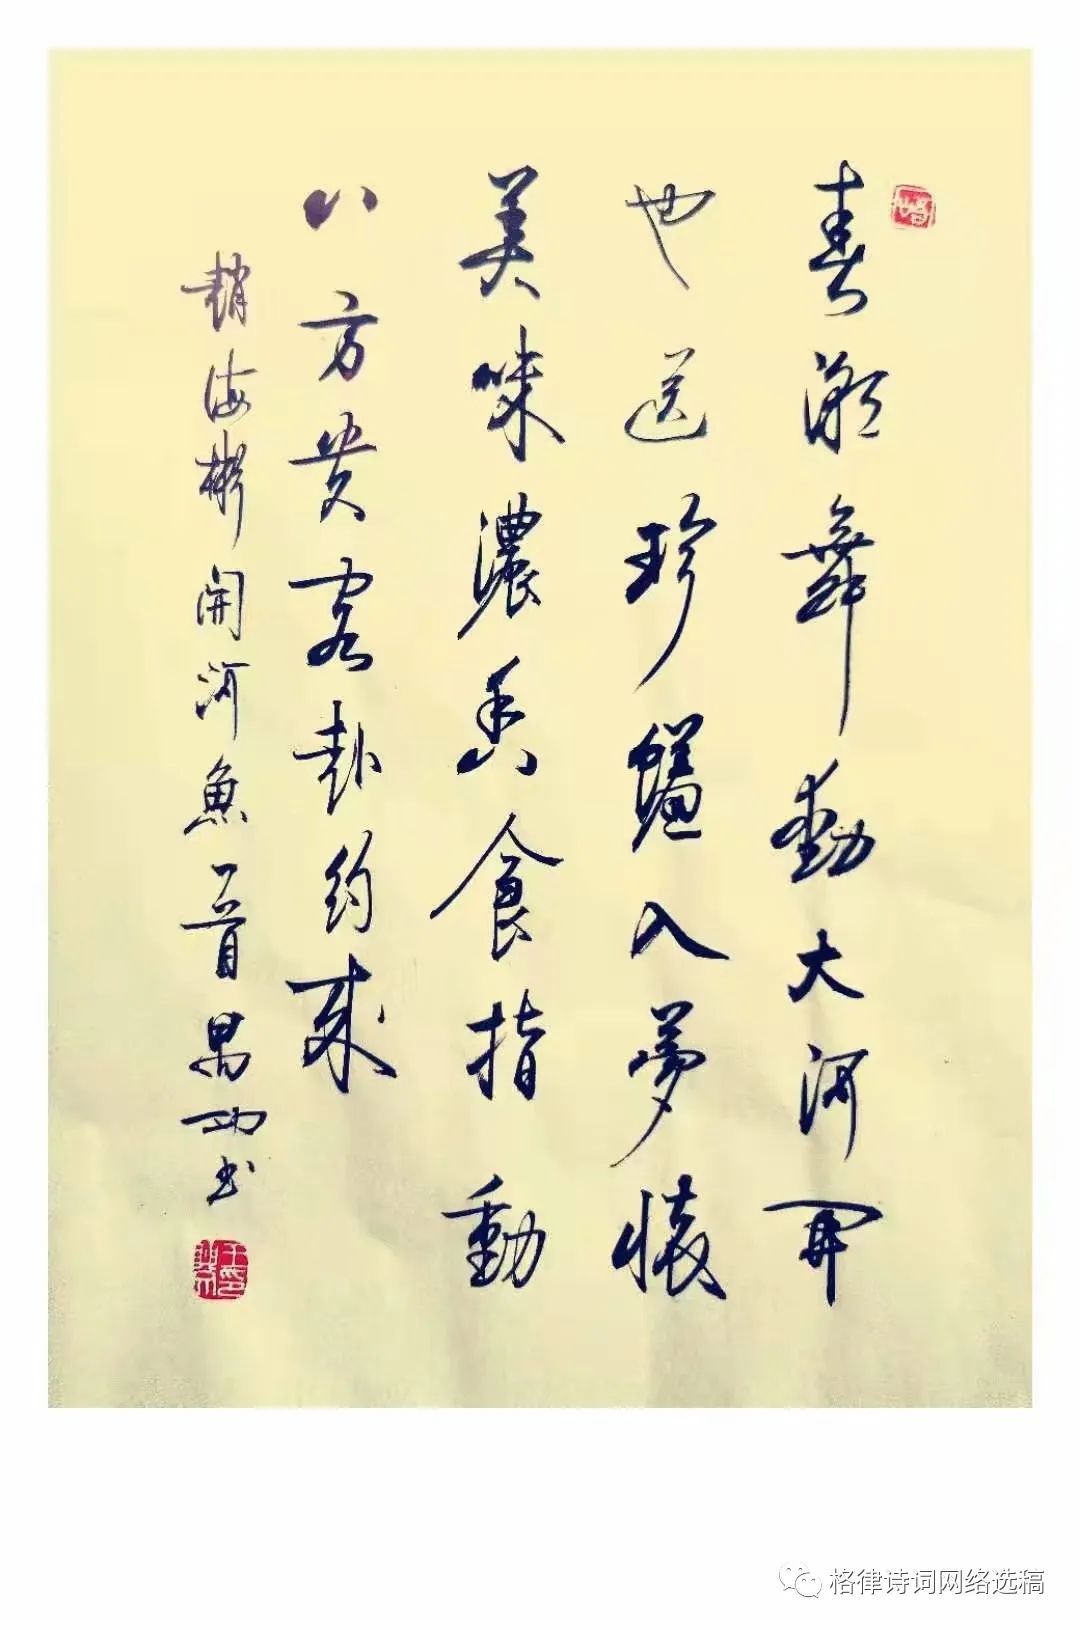 春潮舞動大河開
也送珍饈入夢懷
美味濃香食指動
八方貴客赴約來
趙海彬開河魚一首禺功書
格律诗词网络选稿